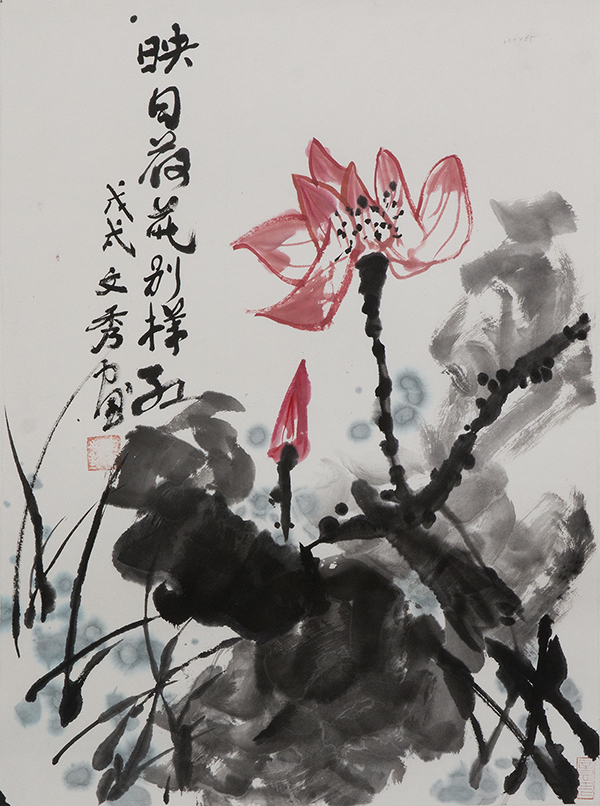 映日荷花别样红
戊戌文秀画